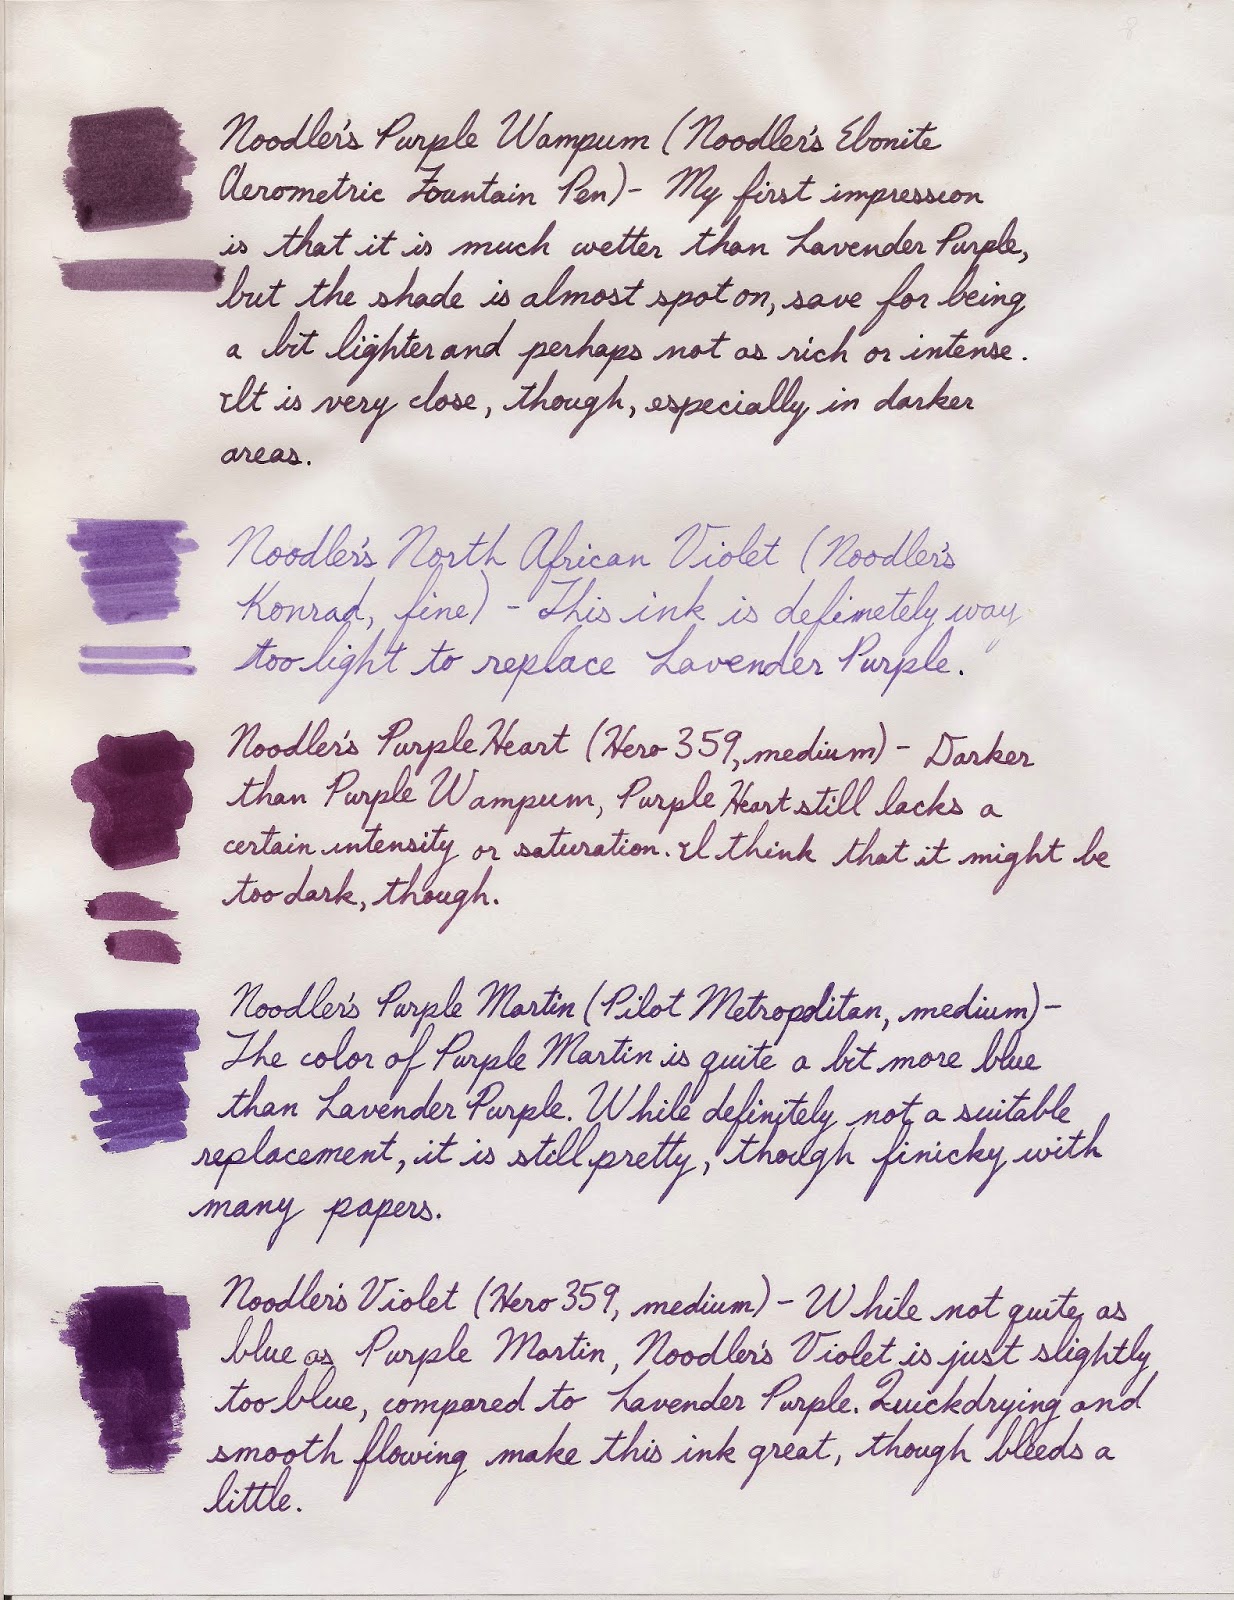 Noodler's Purple Wampum (Noodler's Ebonite
Aerometric Fountain Pen)- My first impression
is that it is much wetter than Lavender Purple,
but the shade is almost spot on, save for being
a bit lighter and perhaps not as rich or intense.
It is very close, though, especially in darker
areas.
Noodler's North African Violet (Noodler's
Konrad, fine) - This ink is defimetely way
too light to replace Lavender Purple.
Noodler's Purple Heart (Hero 359, medium) - Darker
than Purple Wampum, Purple Heart still lacks a
certain intensity or saturation. I think that it might be
too dark, though.
Noodler's Purple Martin (Pilot Metropolitan, medium)-
The color of Purple Martin is quite a bit more blue
than Lavender Purple. While definitely not a suitable
replacement, it is still pretty, though finicky with
many papers.
Noodler's Violet (Hero 359, medium) - While not quite as
blue as Purple Martin, Noodler's Violet is just slightly
too blue, compared to Lavender Purple. Quickdrying and
smooth flowing make this ink great, though bleeds a
little.